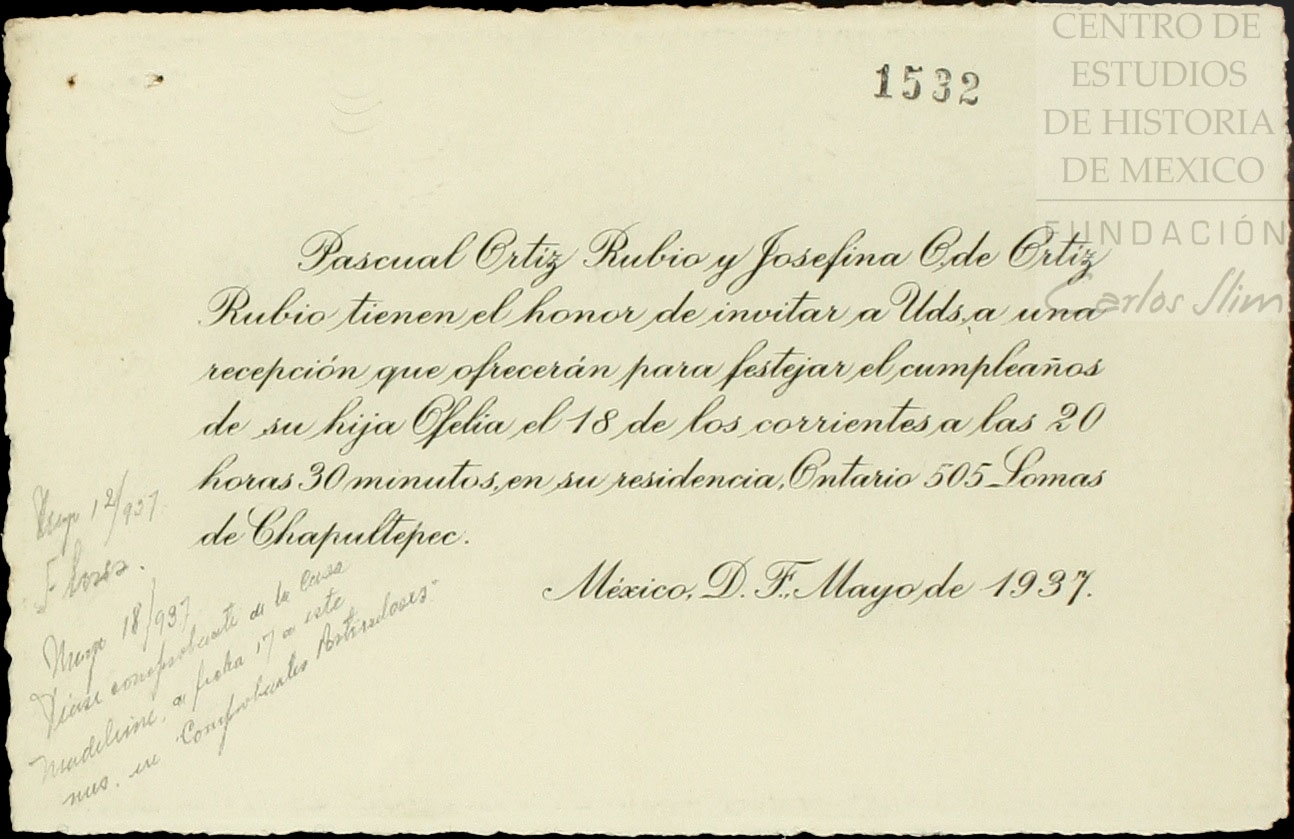 CENTRO DE
ESTUDIOS
DE HISTORIA
DE MEXICO
FUNDACIÓN
Carlos Slim
1532
Pascual Ortiz Rubio y Josefina O. de Ortiz
Rubio tienen el honor de invitar a Uds. a una
recepción que ofrecerán para festejar el cumpleaños
de su hija Ofelia el 18 de los corrientes a las 20
horas 30 minutos, en su residencia, Ontario 505 Lomas
de Chapultepec.
México, D. F., Mayo de 1937.
Mayo 12/937.
Flores.
Mayo 18/937
Véase comprobante de la Casa
Madeleine, de fecha 17 de este
mes, en "Comprobantes